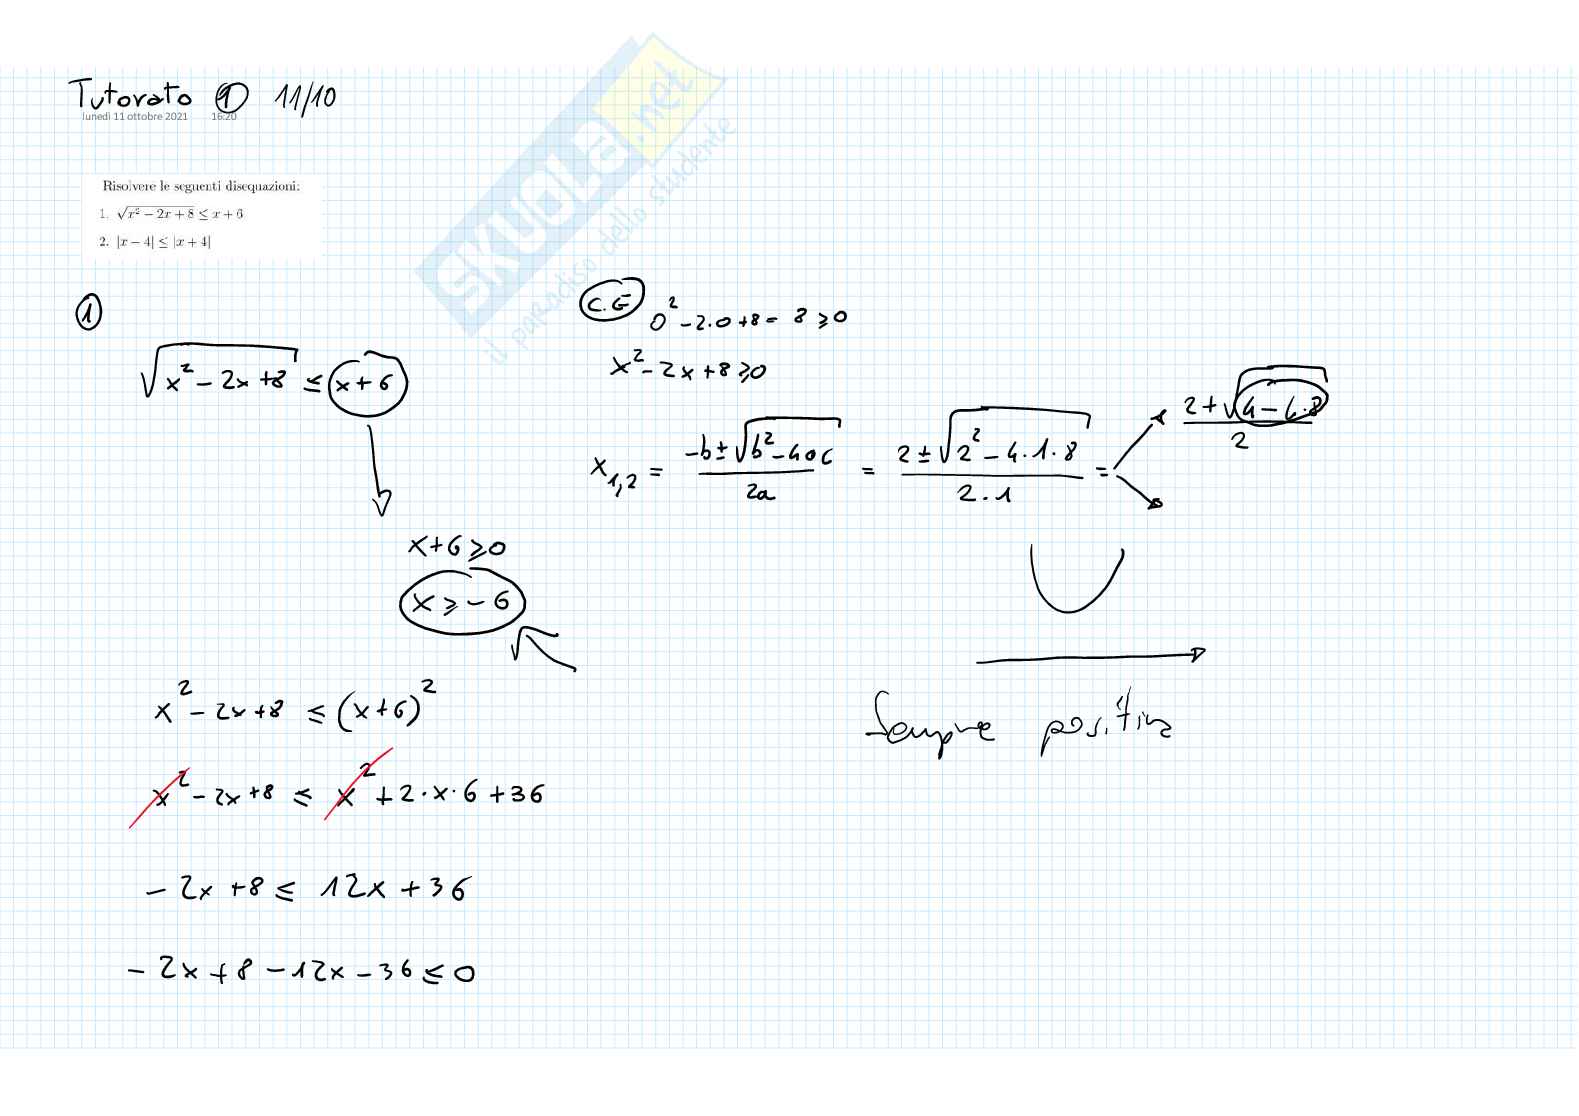 Tutorato ① 11/10
lunedì 11 ottobre 2021 16:20
SKUOLA.net
il paradiso dello studente
Risolvere le seguenti disequazioni:
1. √(x² − 2x + 8) ≤ x + 6
2. |x − 4| ≤ |x + 4|
①
√(x² − 2x + 8) ≤ x + 6
x + 6 ≥ 0
x ≥ − 6
x² − 2x + 8 ≤ (x + 6)²
x² − 2x + 8 ≤ x² + 2 · x · 6 + 36
− 2x + 8 ≤ 12x + 36
− 2x + 8 − 12x − 36 ≤ 0
C.E
0² − 2·0 + 8 = 8 ≥ 0
x² − 2x + 8 ≥ 0
x₁,₂ = (−b ± √(b² − 4ac)) / 2a = (2 ± √(2² − 4·1·8)) / 2·1 = (2 + √(4 − 4·8)) / 2
Sempre positiva